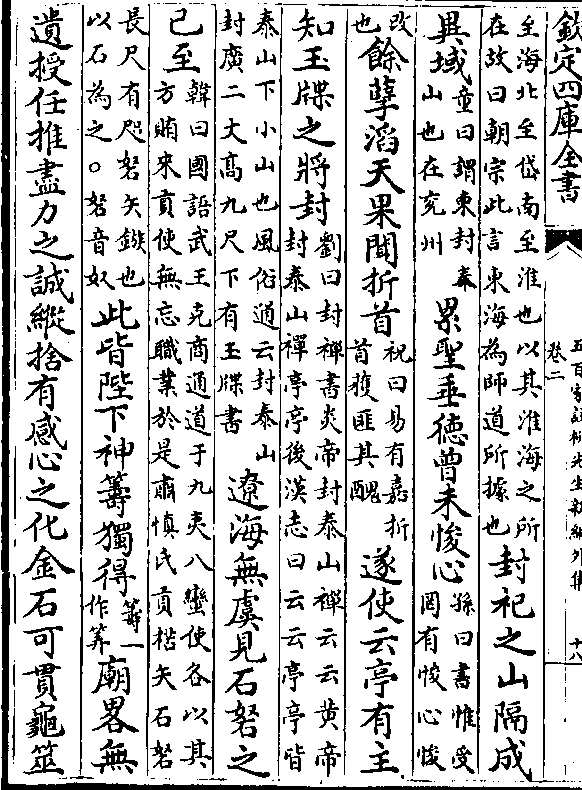 欽定四庫全書
五百家註柳先生新編外集
卷二
十八
至海北至岱南至淮也以其淮海之所
在故曰朝宗此言東海為師道所據也
封祀之山隔成
異域
童曰謂東封泰
山也在兖州
累聖垂德曾未悛心
孫曰書惟受
罔有悛心悛
改
也
餘孽滔天果聞折首
祝曰易有嘉折
首獲匪其醜
遂使云亭有主
知玉牒之將封
劉曰封禪書炎帝封泰山禪云云黄帝
封泰山禪亭亭後漢志曰云云亭亭皆
泰山下小山也風俗通云封泰山
封廣二丈高九尺下有玉牒書
遼海無虞見石砮之
已至
韓曰國語武王克商通道于九夷八蠻使各以其
方賄來貢使無忘職業於是肅慎氏貢楛矢石砮
長尺有咫砮矢鏃也
以石為之○砮音奴
此皆陛下神籌獨得
籌一
作筭
廟畧無
遺授任推盡力之誠縱捨有感心之化金石可貫龜筮